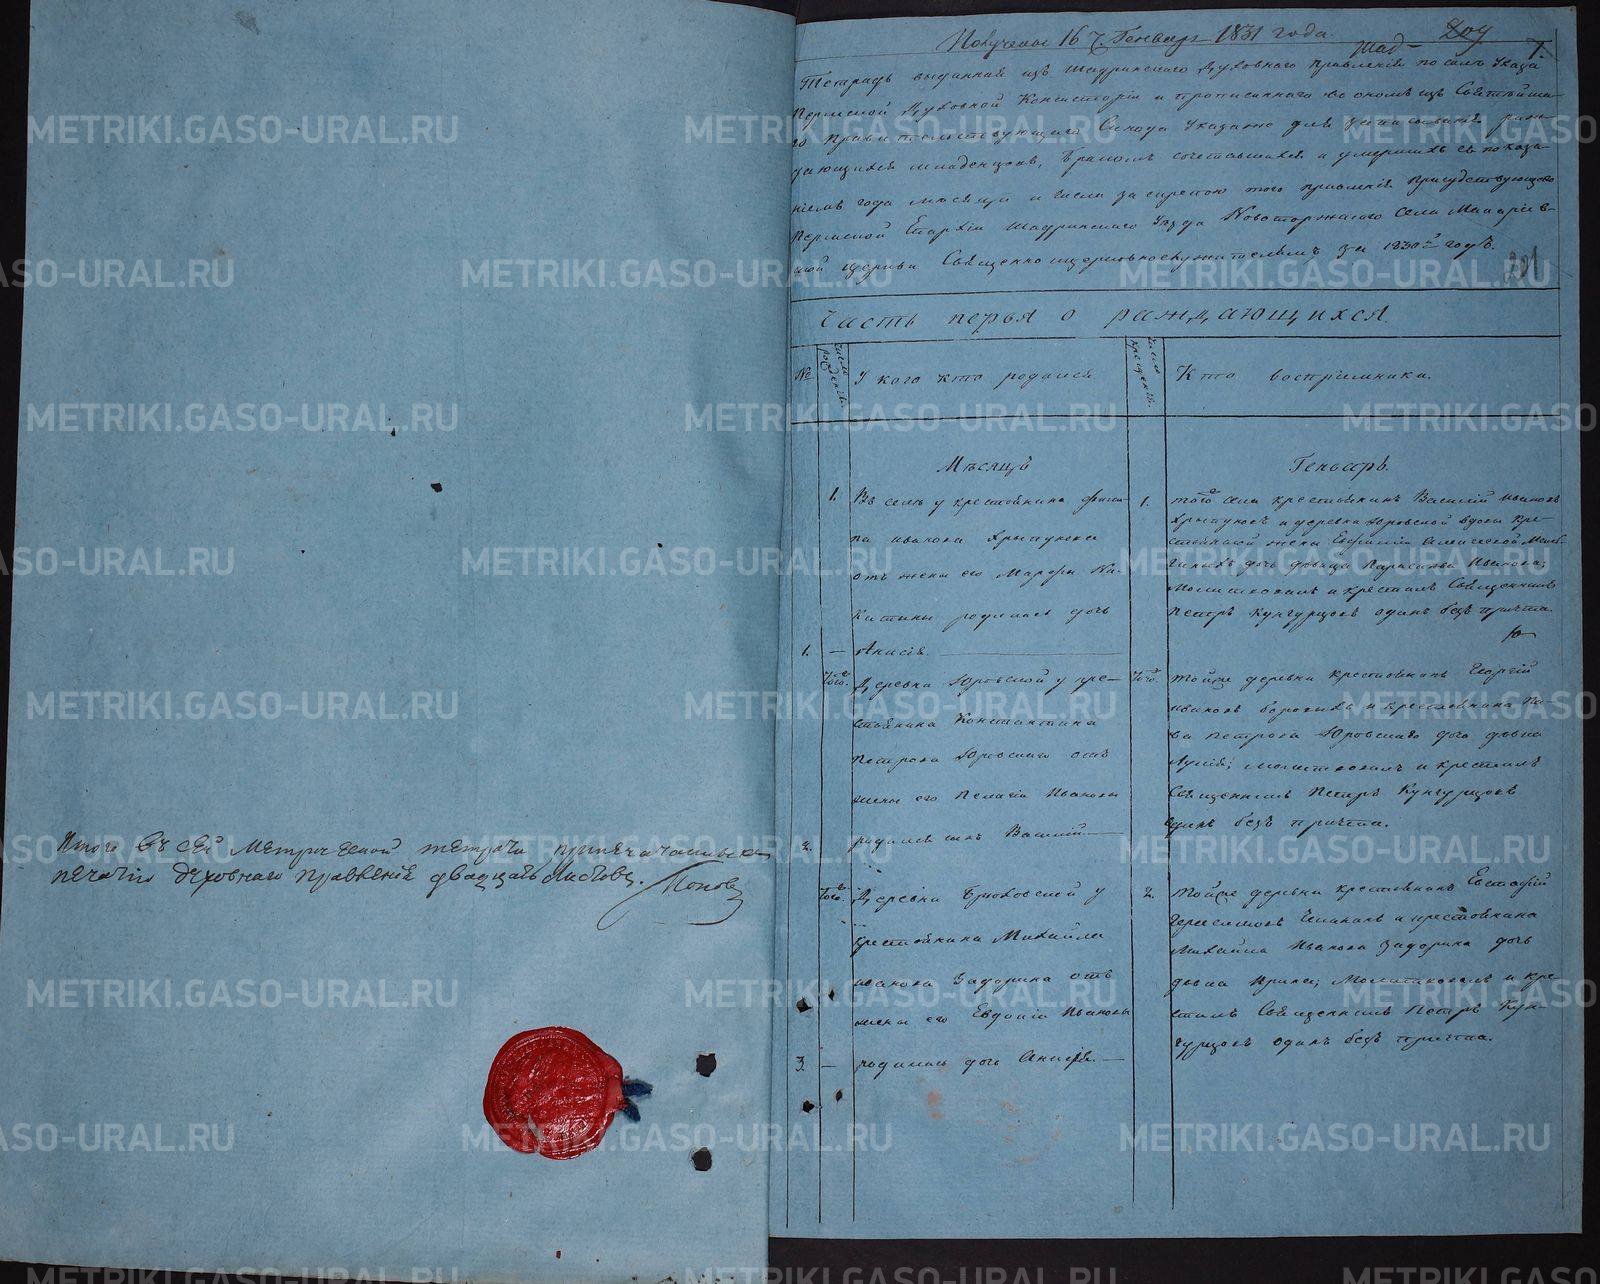 Итого въ сей метрической тетради припечатанныхъ
печатию духовнаго правления двадцать листовъ. Поповъ
Получены 16 ч. Генваря 1831 года.
Шад-
209
1.
Тетрадь выданная изъ Шадринскаго Духовнаго Правления по силѣ Указа
Пермской Духовной Консисторіи и прописаннаго въ ономъ изъ Святѣйша-
го Правительствующаго Синода Указа для записывания раж-
дающихся младенцовъ, бракомъ сочетавшихся и умершихъ съ показа-
ніемъ года месяца и числа за скрепою того правленія Присудствующаго
Пермской Епархіи Шадринскаго Уѣзда Новоторжскаго села Макаріев-
ской церкви Священноцерковнослужителямъ за 1830й годъ.
201
Часть первая о раждающихся
№
Число рожденія
У кого кто родился
Число крещенія
Кто воспріемники.
Мѣсяцъ
Генварь.
1. Въ селѣ у крестьянина Филип-
па Иванова Хрыпунова
отъ жены его Марфы Ни-
китины родилась дочь
1. — Анисія.
1. того села крестьянинъ Василій Ивановъ
Хрыпуновъ и деревни Юровской вдовы кре-
стьянской жены Евфиміи Алексеевой
дочь девица Параскева Иванова;
Молитвовалъ и крестилъ Священникъ
Петръ Кунгурцовъ одинъ безъ причта.
Того. Деревни Юровской у кре-
стьянина Константина
Петрова Юровскаго отъ
жены его Пелагіи Ивановы
2. родился сынъ Василій —
Того. Тойже деревни крестьянинъ Георгій
Ивановъ и крестьянина
Петрова Юровскаго дочь девка
молитвовалъ и крестилъ
Священникъ Петръ Кунгурцовъ
одинъ безъ причта.
Того. Деревни Брюховской у
крестьянина Михайла
Иванова Задорина отъ
жены его Евдокіи Ивановы
3. — родилась дочь Анисія. —
2. Тойже деревни крестьянинъ Евстафій
и крестьянина
Михайла Иванова Задорина дочь
девка Ирина; Молитвовалъ и кре-
стилъ Священникъ Петръ Кун-
гурцовъ одинъ безъ причта.
METRIKI.GASO-URAL.RU